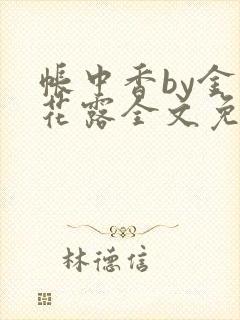 帐中香by金
花露全文免
林德信